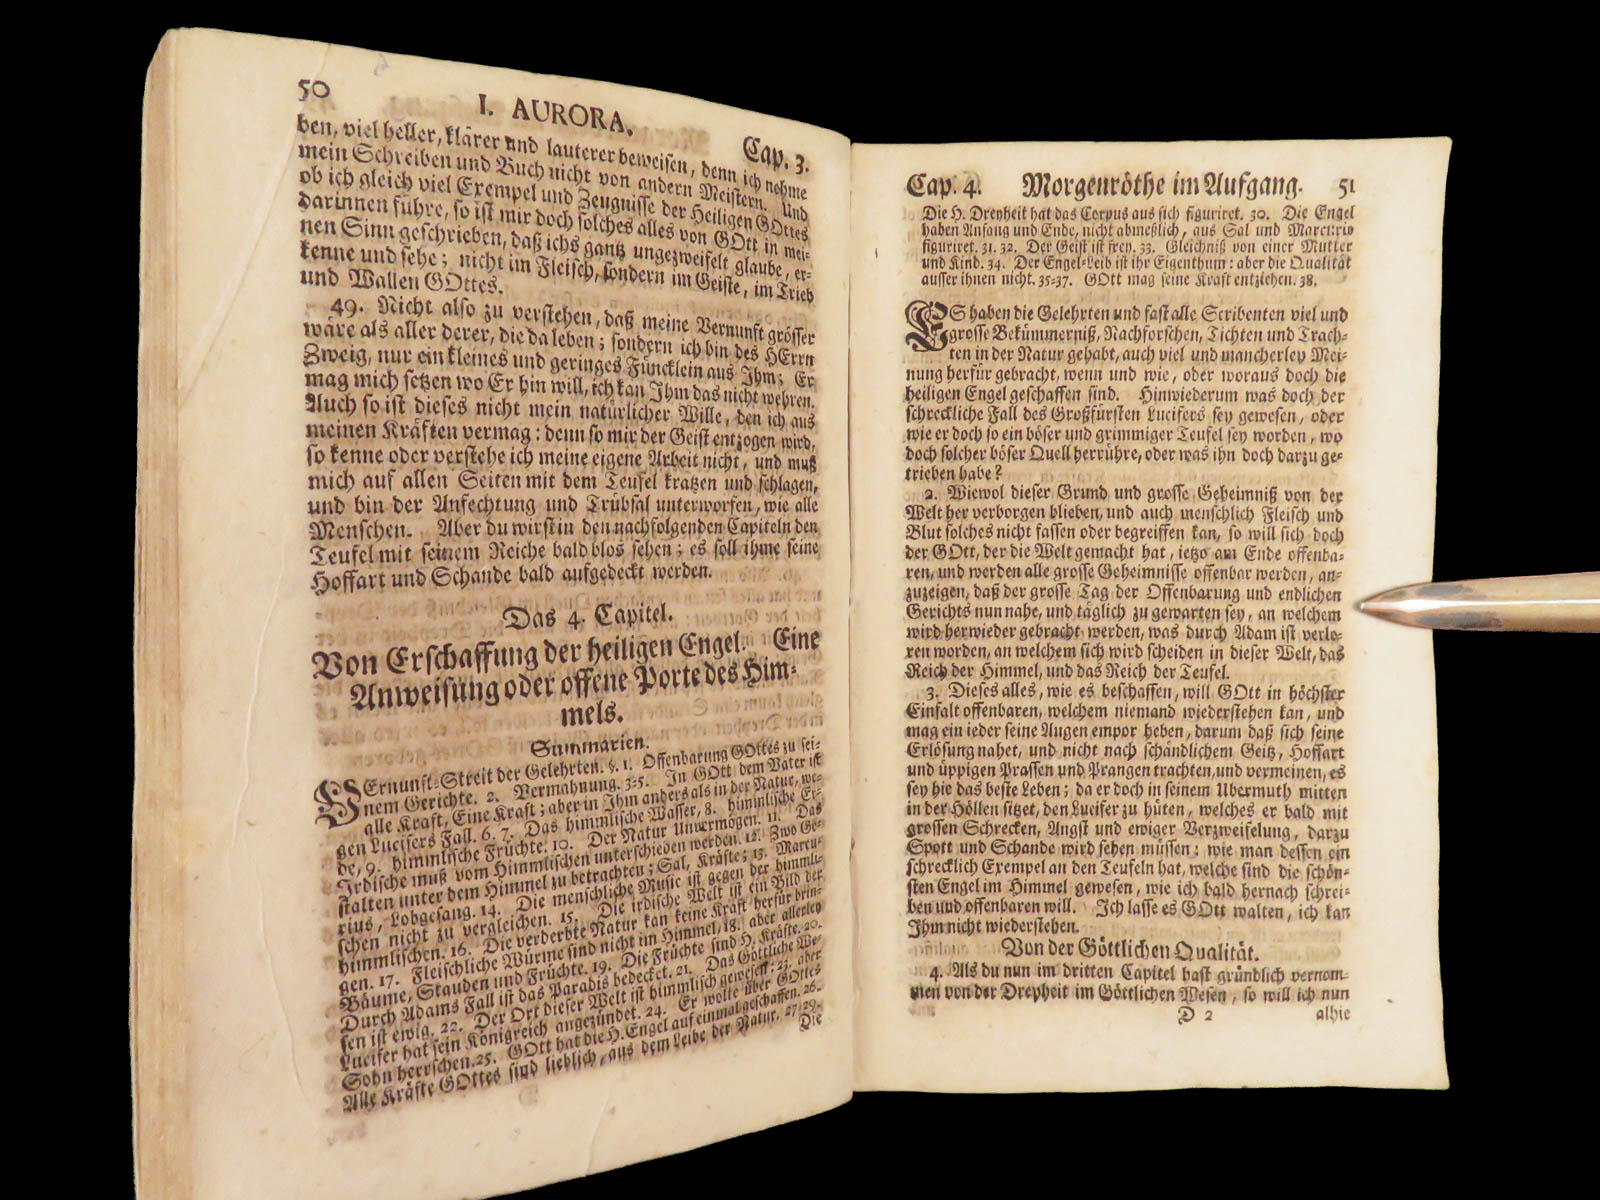 50
I. AURORA.
Cap. 3.
ben, viel heller, klärer und lauterer beweisen, denn ich nehme
mein Schreiben und Buch nicht von andern Meistern. Und
ob ich gleich viel Exempel und Zeugnisse der Heiligen GOttes
darinnen führe, so ist mir doch solches alles von GOtt in mei-
nen Sinn geschrieben, daß ichs gantz ungezweifelt glaube, er-
kenne und sehe; nicht im Fleisch, sondern im Geiste, im Trieb
und Wallen GOttes.
49. Nicht also zu verstehen, daß meine Vernunft grösser
wäre als aller derer, die da leben; sondern ich bin des HErrn
Zweig, nur ein kleines und geringes Füncklein aus Ihm; Er
mag mich setzen wo Er hin will, ich kan Ihm das nicht wehren.
Auch so ist dieses nicht mein natürlicher Wille, den ich aus
meinen Kräften vermag: denn so mir der Geist entzogen wird,
so kenne oder verstehe ich meine eigene Arbeit nicht, und muß
mich auf allen Seiten mit dem Teufel kratzen und schlagen,
und bin der Anfechtung und Trübsal unterworfen, wie alle
Menschen. Aber du wirst in den nachfolgenden Capiteln den
Teufel mit seinem Reiche bald blos sehen; es soll ihme seine
Hoffart und Schande bald aufgedeckt werden.
Das 4. Capitel.
Von Erschaffung der heiligen Engel. Eine
Anweisung oder offene Porte des Him-
mels.
Summarien.
VErnunft-Streit der Gelehrten. §. 1. Offenbarung GOttes zu sei-
nem Gerichte. 2. Vermahnung. 3-5. In GOtt dem Vater ist
alle Kraft, Eine Kraft; aber in Ihm anders als in der Natur, we-
gen Lucifers Fall. 6. 7. Das himmlische Wasser, 8. himmlische Er-
de, 9. himmlische Früchte. 10. Der Natur Unvermögen. 11. Das
Irdische muß vom Himmlischen unterschieden werden. 12. Zwo Ge-
stalten unter dem Himmel zu betrachten; Sal, Kräfte; 13. Mercu-
rius, Lobgesang. 14. Die menschliche Music ist gegen der himmli-
schen nicht zu vergleichen. 15. Die irdische Welt ist ein Bild der
himmlischen. 16. Die verderbte Natur kan keine Kraft herfür brin-
gen. 17. Fleischliche Würme sind nicht im Himmel, 18. aber allerley
Bäume, Stauden und Früchte. 19. Die Früchte sind H. Kräfte. 20.
Durch Adams Fall ist das Paradis bedecket. 21. Das Göttliche We-
sen ist ewig. 22. Der Ort dieser Welt ist himmlisch gewesen: 23. aber
Lucifer hat sein Königreich angezündet. 24. Er wolte über GOttes
Sohn herrschen. 25. GOtt hat die H. Engel auf einmal geschaffen. 26.
Alle Kräfte GOttes sind lieblich, aus dem Leibe der Natur. 27-29.
Die
Cap. 4. Morgenröthe im Aufgang. 51
Die H. Dreyheit hat das Corpus aus sich figuriret. 30. Die Engel
haben Anfang und Ende, nicht abmeßlich, aus Sal und Mercurio
figuriret. 31. 32. Der Geist ist frey. 33. Gleichniß von einer Mutter
und Kind. 34. Der Engel-Leib ist ihr Eigenthum: aber die Qualität
ausser ihnen nicht. 35-37. GOtt mag seine Kraft entziehen. 38.
ES haben die Gelehrten und fast alle Scribenten viel und
grosse Bekümmerniß, Nachforschen, Tichten und Trach-
ten in der Natur gehabt, auch viel und mancherley Mei-
nung herfür gebracht, wenn und wie, oder woraus doch die
heiligen Engel geschaffen sind. Hinwiederum was doch der
schreckliche Fall des Großfürsten Lucifers sey gewesen, oder
wie er doch so ein böser und grimmiger Teufel sey worden, wo
doch solcher böser Quell herrühre, oder was ihn doch darzu ge-
trieben habe?
2. Wiewol dieser Grund und grosse Geheimniß von der
Welt her verborgen blieben, und auch menschlich Fleisch und
Blut solches nicht fassen oder begreiffen kan, so will sich doch
der GOtt, der die Welt gemacht hat, ietzo am Ende offenba-
ren, und werden alle grosse Geheimnisse offenbar werden, an-
zuzeigen, daß der grosse Tag der Offenbarung und endlichen
Gerichts nun nahe, und täglich zu gewarten sey, an welchem
wird herwieder gebracht werden, was durch Adam ist verlo-
ren worden, an welchem sich wird scheiden in dieser Welt, das
Reich der Himmel, und das Reich der Teufel.
3. Dieses alles, wie es beschaffen, will GOtt in höchster
Einfalt offenbaren, welchem niemand wiederstehen kan, und
mag ein ieder seine Augen empor heben, darum daß sich seine
Erlösung nahet, und nicht nach schändlichem Geitz, Hoffart
und üppigen Prassen und Prangen trachten, und vermeinen, es
sey hie das beste Leben; da er doch in seinem Ubermuth mitten
in der Höllen sitzet, den Lucifer zu hüten, welches er bald mit
grossen Schrecken, Angst und ewiger Verzweifelung, darzu
Spott und Schande wird sehen müssen: wie man dessen ein
schrecklich Exempel an den Teufeln hat, welche sind die schön-
sten Engel im Himmel gewesen, wie ich bald hernach schrei-
ben und offenbaren will. Ich lasse es GOtt walten, ich kan
Ihm nicht wiederstehen.
Von der Göttlichen Qualität.
4. Als du nun im dritten Capitel hast gründlich vernom-
men von der Dreyheit im Göttlichen Wesen, so will ich nun
D 2 alhie